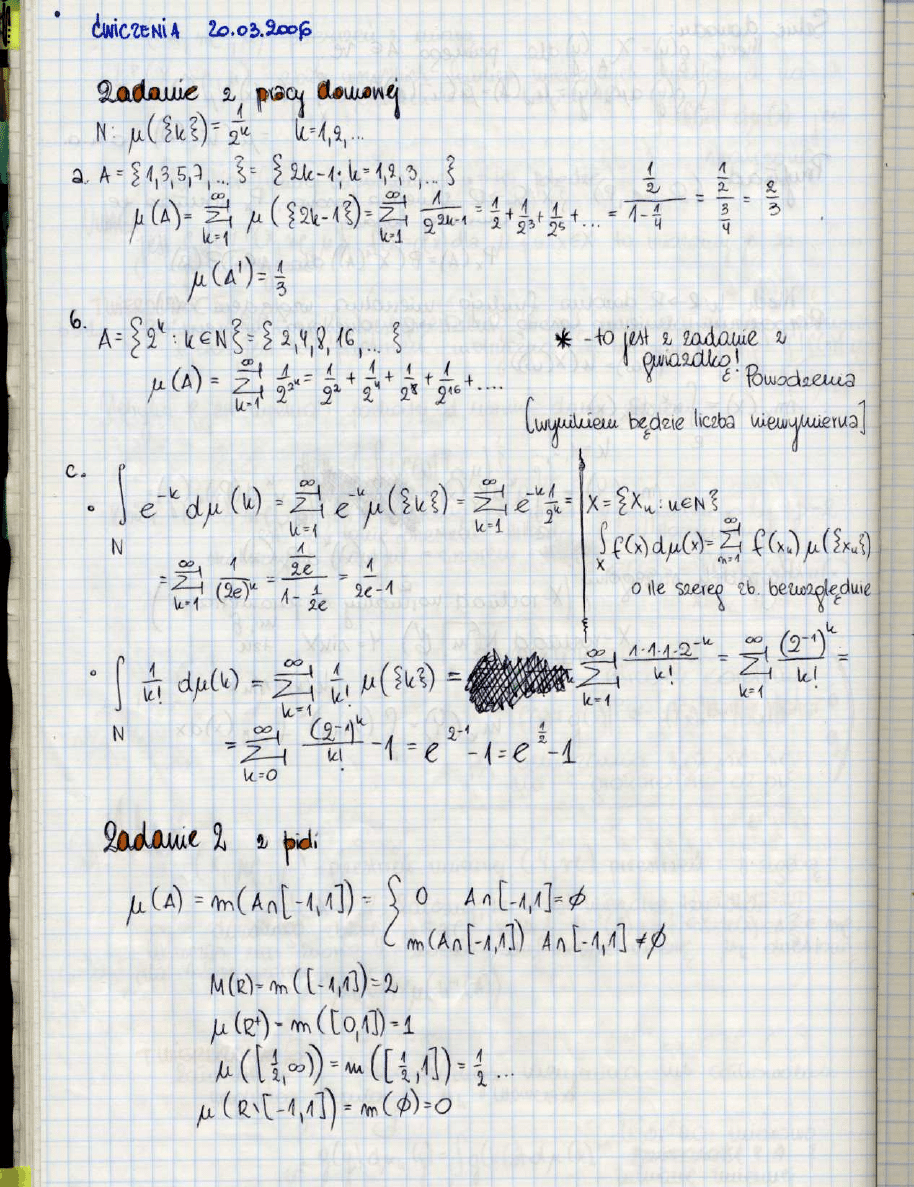 ĆWICZENIA 20.03.2006
Zadanie 2 z pracy domowej
N: μ({k}) = 1/2^k k=1,2,...
a. A = {1,3,5,7,...} = {2k-1: k=1,2,3,...}
μ(A) = ∑_{k=1}^{∞} μ({2k-1}) = ∑_{k=1}^{∞} 1/2^{2k-1} = 1/2 + 1/2^3 + 1/2^5 + ... = (1/2)/(1-1/4) = (1/2)/(3/4) = 2/3
μ(A') = 1/3
b. A = {2^k : k∈N} = {2,4,8,16,...}
* - to jest z zadanie z gwiazdką! Powodzenia
μ(A) = ∑_{k=1}^{∞} 1/2^{2^k} = 1/2^2 + 1/2^4 + 1/2^8 + 1/2^16 + ....
[wynikiem będzie liczba niewymierna]
c.
• ∫_N e^{-k} dμ(k) = ∑_{k=1}^{∞} e^{-k} μ({k}) = ∑_{k=1}^{∞} e^{-k} 1/2^k =
= ∑_{k=1}^{∞} 1/(2e)^k = (1/2e)/(1-1/2e) = 1/(2e-1)
X = {x_n : n∈N}
∫_X f(x)dμ(x) = ∑_{n=1}^{∞} f(x_n) μ({x_n})
o ile szereg zb. bezwzględnie
• ∫_N 1/k! dμ(k) = ∑_{k=1}^{∞} 1/k! μ({k}) = ∑_{k=1}^{∞} (1·1·1·2^{-k})/k! = ∑_{k=1}^{∞} (2^{-1})^k/k! =
= ∑_{k=0}^{∞} (2^{-1})^k/k! - 1 = e^{2^{-1}} - 1 = e^{1/2} - 1
Zadanie 2 z pidi
μ(A) = m(A∩[-1,1]) = { 0 A∩[-1,1]=∅
m(A∩[-1,1]) A∩[-1,1]≠∅
M(R) = m([-1,1]) = 2
μ(R⁺) = m([0,1]) = 1
μ([1/2,∞)) = m([1/2,1]) = 1/2 ...
μ(R\[-1,1]) = m(∅) = 0